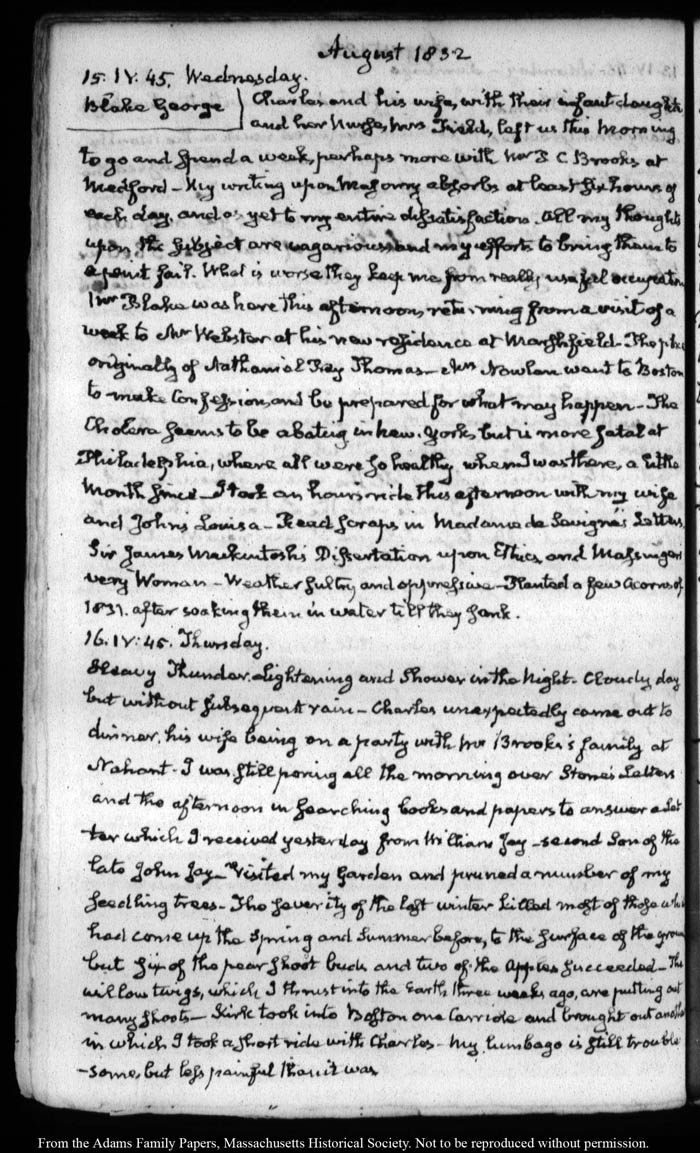 August 1832
15. IV:45. Wednesday.
Blake George
Charles and his wife, with their infant daughter
and her Nurse, Mrs Field, left us this Morning
to go and spend a week, perhaps more with Mr P. C. Brooks, at
Medford – My writing upon Masonry absorbs at least six hours of
each day, and as yet to my entire dissatisfaction. All my thoughts
upon the subject are vagarious and my efforts to bring them to
a point fail. What is worse they keep me from really useful occupation
Mr Blake was here this afternoon, returning from a visit of a
week to Mr Webster at his new residence at Marshfield – The place
originally of Nathaniel Ray Thomas – Mrs Nowlan went to Boston
to make Confession, and be prepared for what may happen – The
Cholera seems to be abating in New-York, but is more fatal at
Philadelphia, where all were so healthy when I was there, a little
Month since – I took an hour's ride this afternoon with my wife
and John's Louisa – Read scraps in Madame de Sevigné's Letters
Sir James Mackintosh's Dissertation upon Ethics, and Massinger's
very Woman – Weather sultry and oppressive – Planted a few acorns of
1831. after soaking them in water till they sank.
16. IV:45. Thursday.
Heavy Thunder, Lightening and Shower in the Night – Cloudy day
but without subsequent rain – Charles unexpectedly came out to
dinner, his wife being on a party with Mr Brooks's family at
Nahant – I was still poring all the morning over Stone's Letters
and the afternoon in searching books and papers to answer a Let
ter which I received yesterday from William Jay – second Son of the
late John Jay – Visited my Garden and pruned a number of my
seedling trees – The severity of the last winter killed most of those which
had come up the Spring and Summer before, to the surface of the ground
but six of the pear shoot buds and two of the Apples succeeded – The
willow twigs, which I thrust into the Earth three weeks ago, are putting out
many shoots – Kirk took into Boston one Carriole and brought out another
in which I took a short ride with Charles – My lumbago is still trouble
-some, but less painful than it was
From the Adams Family Papers, Massachusetts Historical Society. Not to be reproduced without permission.